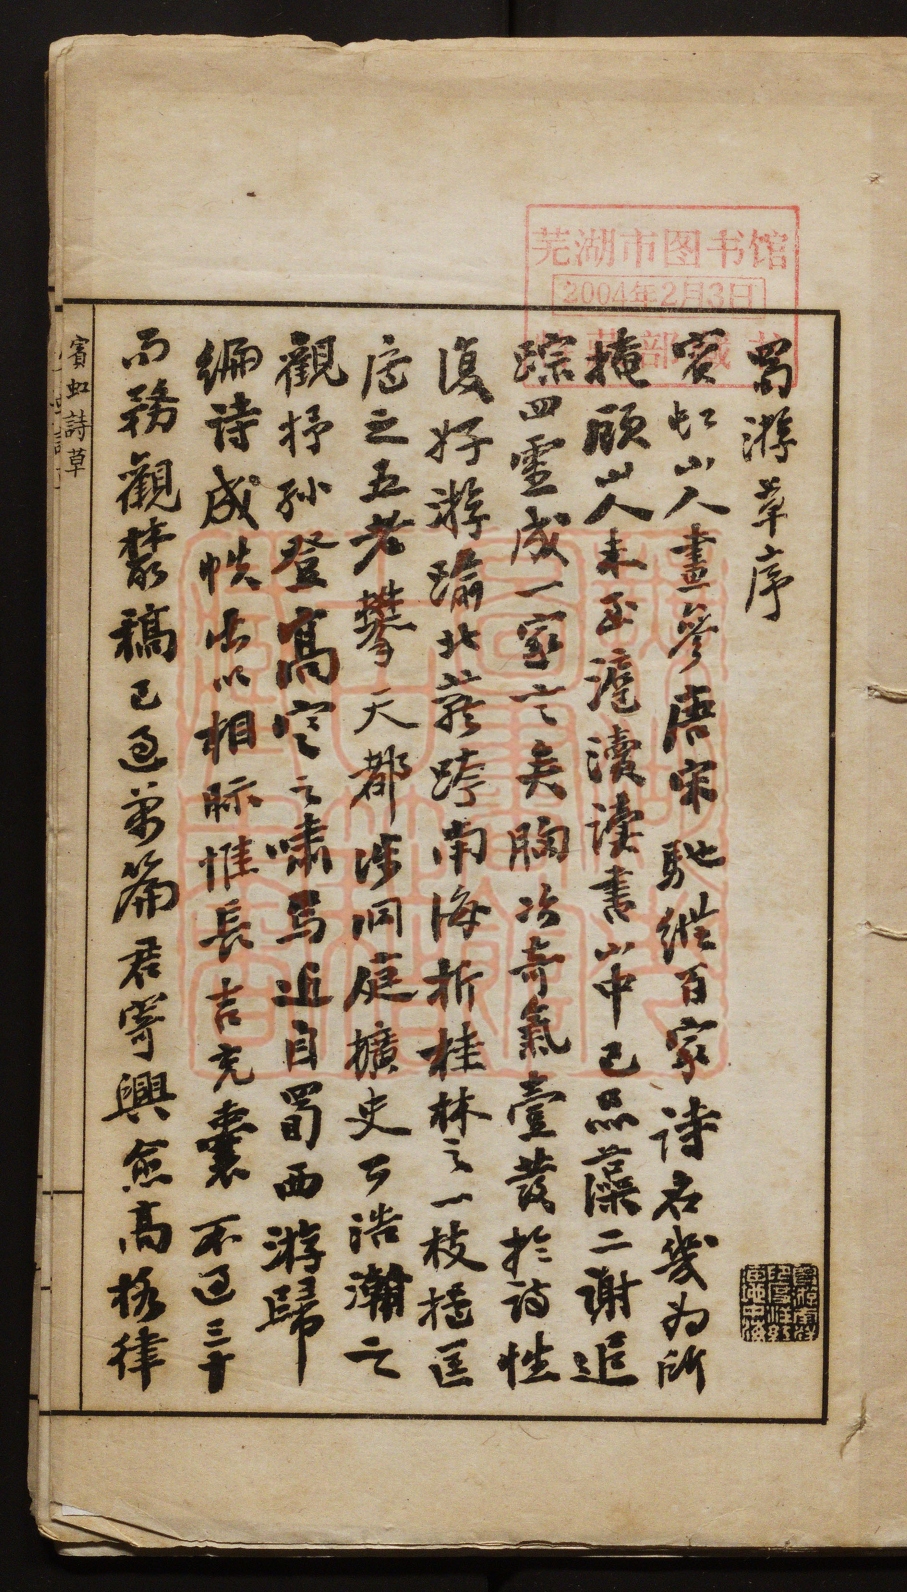 芜湖市图书馆
2004年2月3日
蜀游草序
賓虹山人畫參唐宋馳縱百家詩名幾为所
掩顧山人未至滬瀆讀書山中已品藻二謝追
踪四靈成一家言矣胸次奇氣壹發於詩性
復好游瑜北蘇跨南海折桂林之一枝摇匡
庐之五老攀天都涉洞庭擴史公浩瀚之
觀抒孙登高空之嘯焉近自蜀西游歸
编诗成帙出以相眎惟長吉充囊不过三十
而務觀叢稿已过萬篇君寄興愈高格律
賓虹詩草